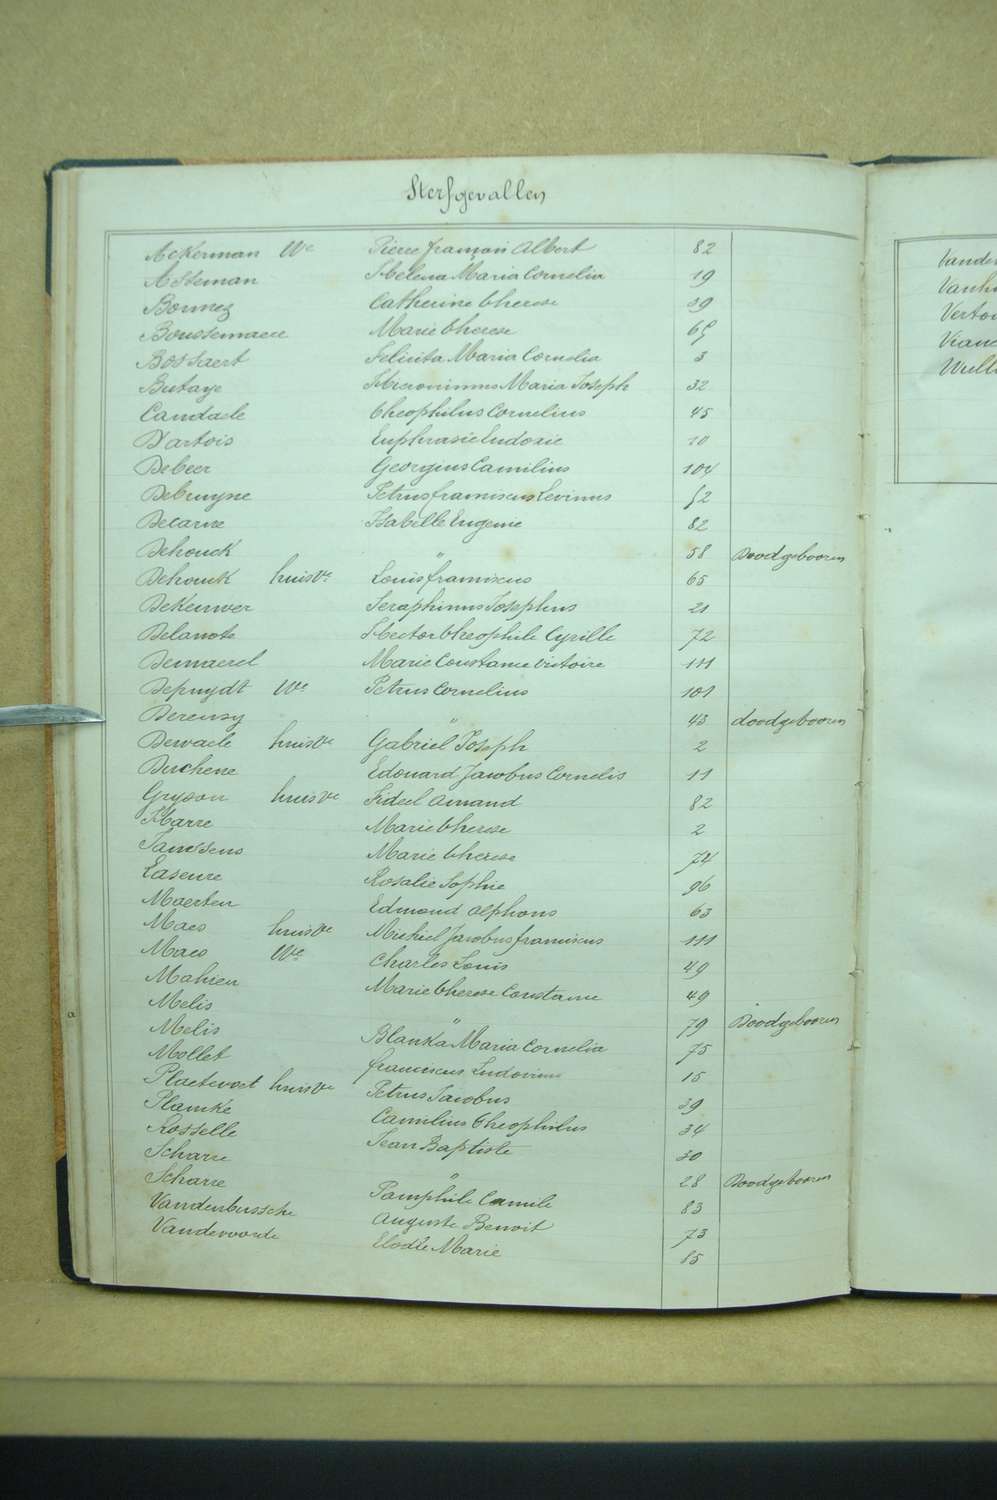 Sterfgevallen
Ackerman We Pierre françois Albert 82
Asteman Helena Maria Cornelia 19
Bonnez Catherine Therese 39
Boussemaere Marie Therese 65
Bossaert Felicita Maria Cornelia 3
Butaye Hieronimus Maria Joseph 32
Candaele Theophilus Cornelius 45
Dartois Euphrasie Eudoxie 10
Debeer Georgius Camilius 104
Debruyne Petrus franciscus Levinus 52
Decarne Isabelle Eugenie 82
Dehouck " 58 Doodgebooren
Dehouck huisve Louis franciscus 65
DeKeuwer Seraphinus Josephus 21
Delanote Hector Theophile Cyrille 72
Demaerel Marie Constance Victoire 111
Depuydt We Petrus Cornelius 101
Dereusy " 43 doodgebooren
Dewaele huisve Gabriël Joseph 2
Duchene Edouard Jacobus Cornelis 11
Gryson huisve Fideel Amand 82
Harre Marie Therese 2
Janssens Marie Therese 74
Laseure Rosalie Sophie 96
Maerten Edmond Alphons 63
Maes huisve Michiel Jacobus franciscus 111
Maes We Charles Louis 49
Mahieu Marie Therese Constance 49
Melis " 79 Doodgebooren
Melis Blanka Maria Cornelia 75
Mollet franciscus Ludovicus 15
Plaetevoet huisve Petrus Jacobus 39
Plancke Camilius Theophilus 34
Rosselle Jean Baptiste 30
Scharre " 28 Doodgebooren
Scharre Pamphile Camile 83
Vandenbussche Auguste Benoit 73
Vandevoorde Elodie Marie 85